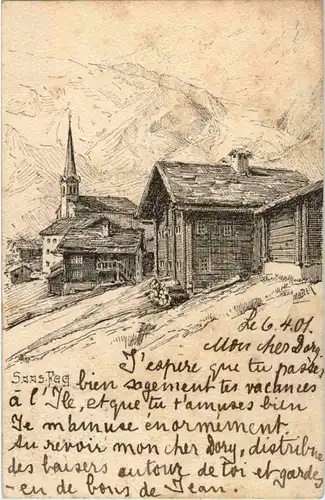 Saas-Feé
Le 6.4.01.
Mon cher Dory,
J'espère que tu passes
bien sagement tes vacances
à l'Ile, et que tu t'amuses bien
Je m'amuse enormement.
Au revoir mon cher Dory, distribue
des baisers autour de toi et gardes
-en de bons de Jean.